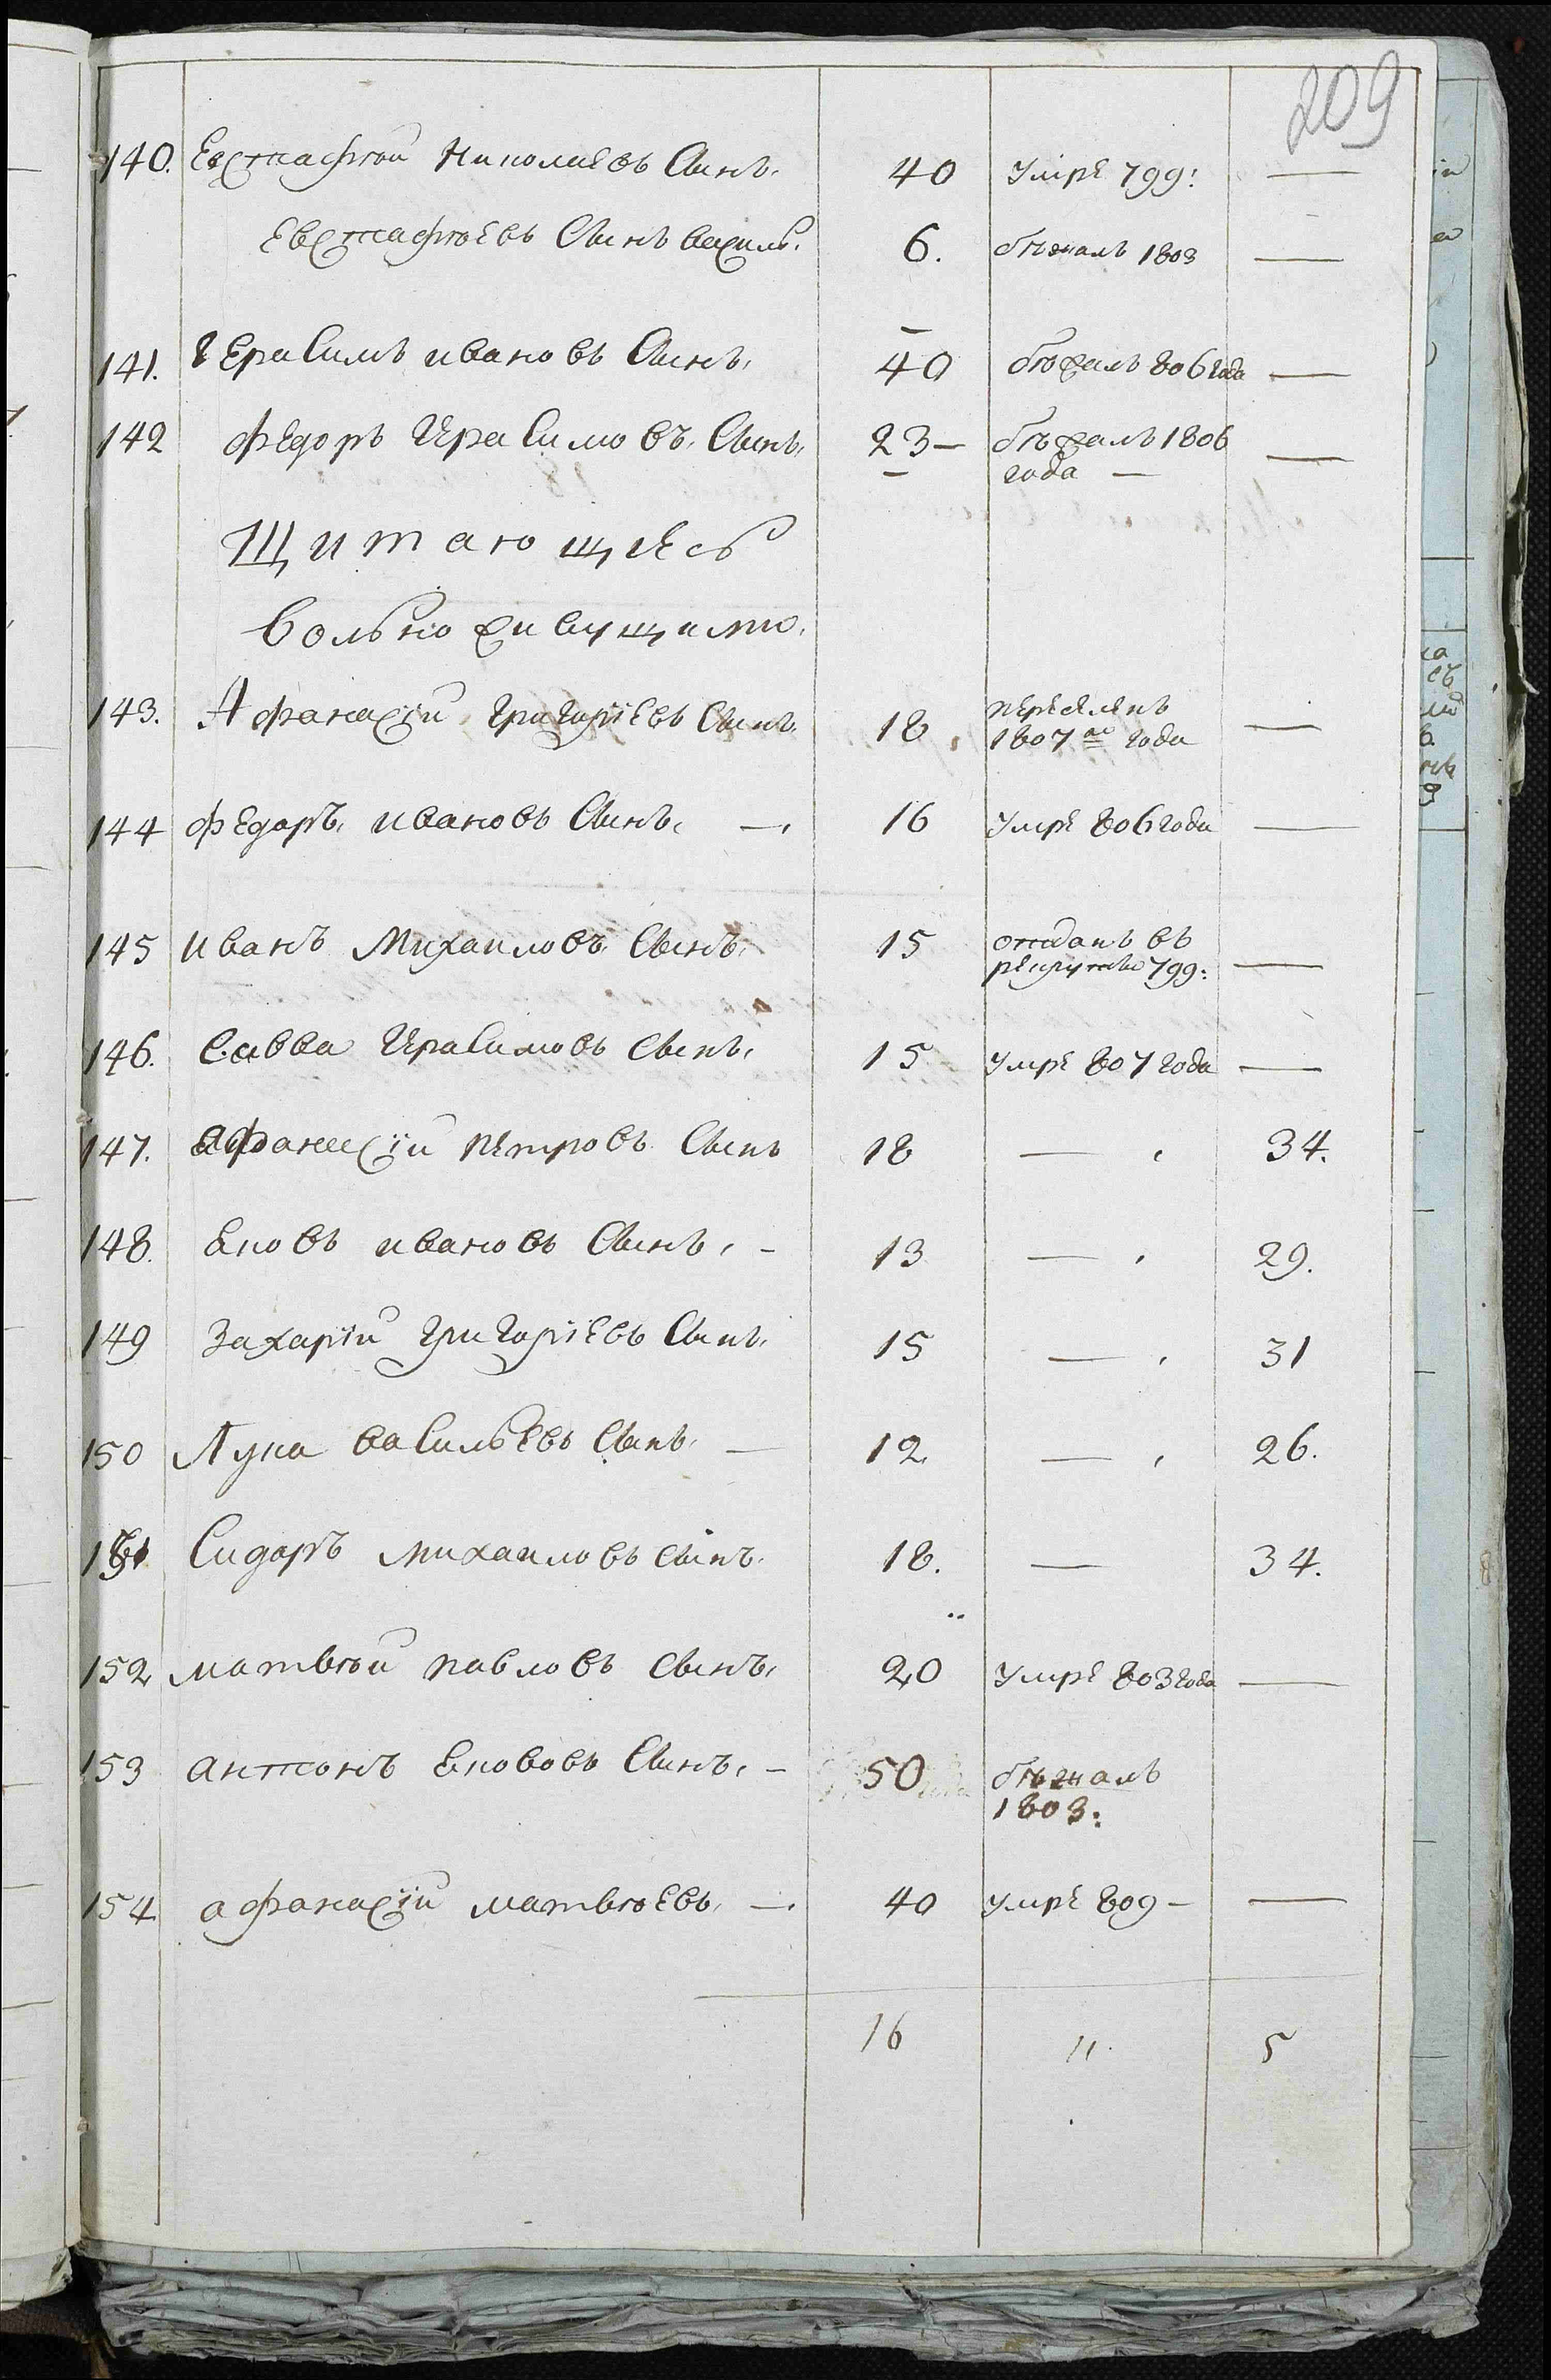 209
140. Евстафѣй Николаевъ Сынъ. 40 умре 799: —
Евстафѣевъ Сынъ василь. 6. бѣжалъ 1803 —
141. Герасимъ ивановъ Сынъ. 40 бѣжалъ 806 года —
142 федоръ Герасимовъ Сынъ. 23 — бѣжалъ 1806 —
года —
Щитающиесь
вольно живущимѣ.
143. Афанасій григоріевъ Сынъ 18 переселенъ
1807го года —
144 федоръ ивановъ Сынъ. — 16 умре 806 года —
145 иванъ Михаиловъ Сынъ. 15 отданъ въ
рекруты 799: —
146. Савва Герасимовъ Сынъ. 15 умре 807 года —
147. Афанасій петровъ Сынъ 18 — 34.
148. Яковъ ивановъ Сынъ. — 13 — 29.
149 Захарій григоріевъ Сынъ. 15 — 31
150 Лука васильевъ Сынъ. — 12 — 26.
151 Сидоръ михаиловъ сынъ. 18. — 34.
152 матвѣй павловъ сынъ. 20 умре 803 года —
153 антонъ Якововъ Сынъ. — 50 бѣжалъ
1803:
154 афанасій матвѣевъ. — 40 умре 809 — —
16 11. 5